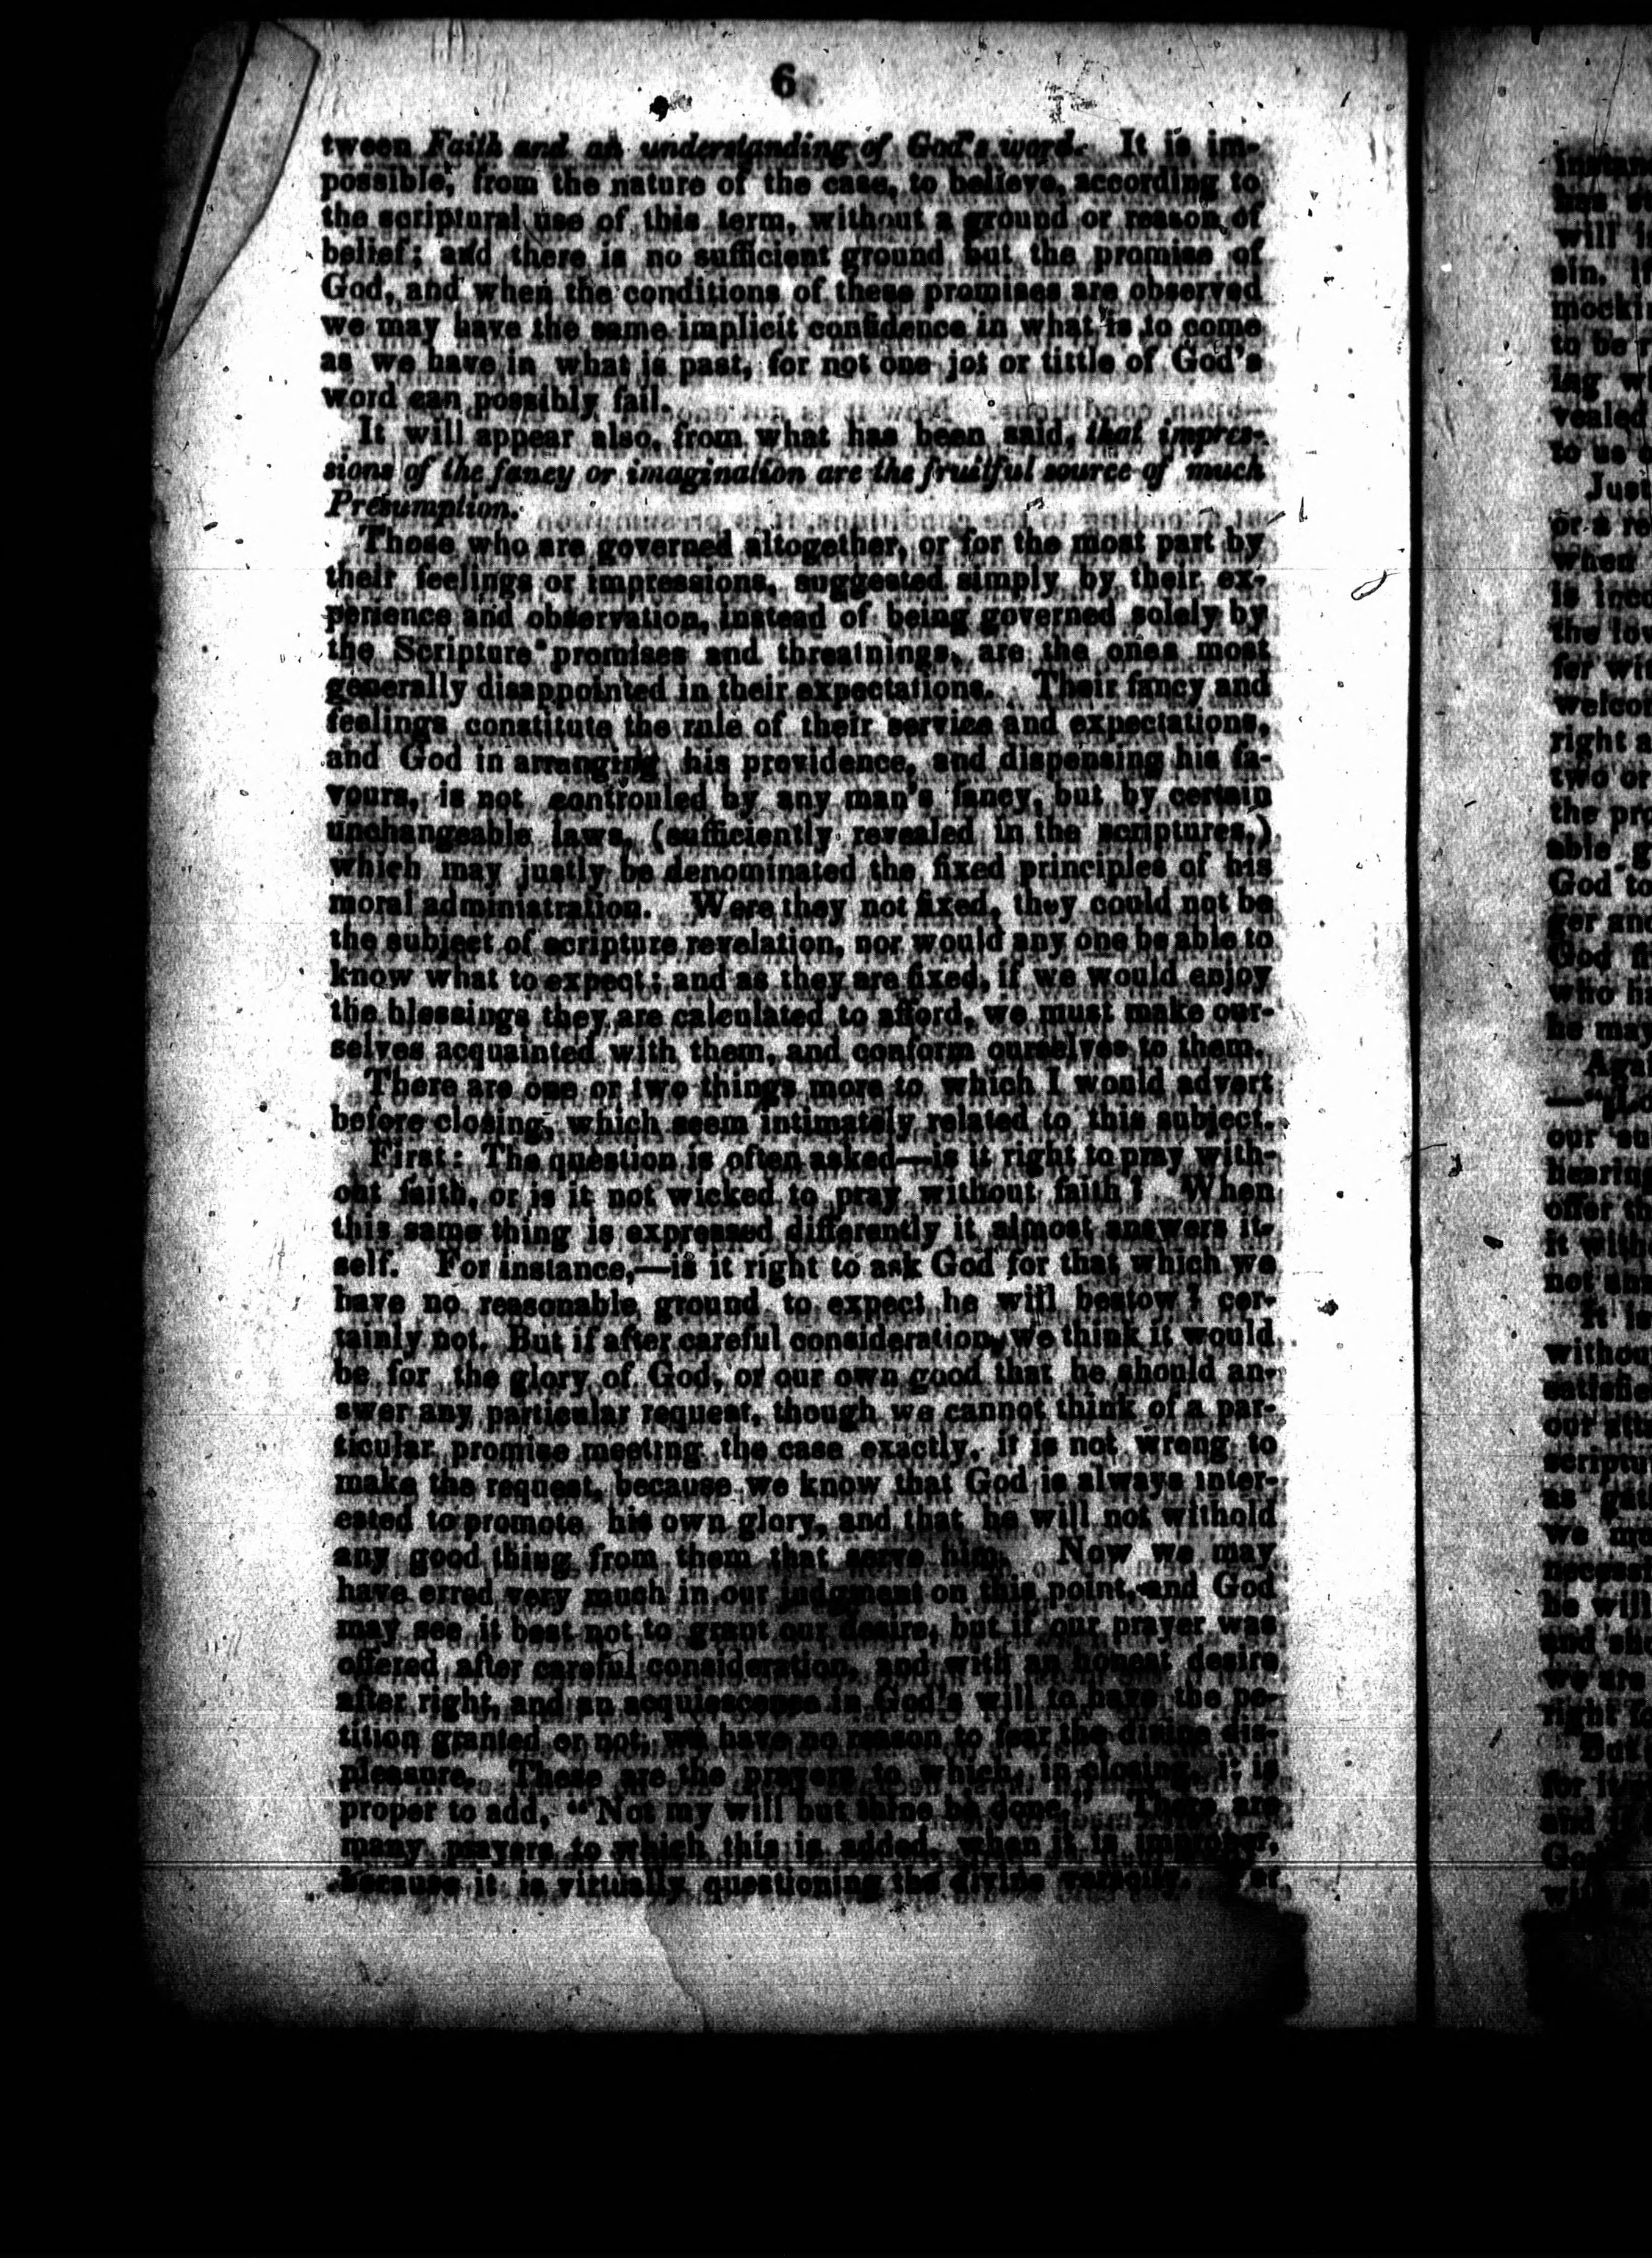 6
tween Faith and an understanding of God's word. It is im-
possible, from the nature of the case, to believe, according to
the scriptural use of this term, without a ground or reason of
belief; and there is no sufficient ground but the promise of
God, and when the conditions of these promises are observed
we may have the same implicit confidence in what is to come
as we have in what is past, for not one jot or tittle of God's
word can possibly fail.
It will appear also, from what has been said, that impres-
sions of the fancy or imagination are the fruitful source of much
Presumption.
Those who are governed altogether, or for the most part by
their feelings or impressions, suggested simply by their ex-
perience and observation, instead of being governed solely by
the Scripture promises and threatnings, are the ones most
generally disappointed in their expectations. Their fancy and
feelings constitute the rule of their service and expectations,
and God in arranging his providence, and dispensing his fa-
vours, is not controuled by any man's fancy, but by certain
unchangeable laws, (sufficiently revealed in the scriptures,)
which may justly be denominated the fixed principles of his
moral administration. Were they not fixed, they could not be
the subject of scripture revelation, nor would any one be able to
know what to expect; and as they are fixed, if we would enjoy
the blessings they are calculated to afford, we must make our-
selves acquainted with them, and conform ourselves to them.
There are one or two things more to which I would advert
before closing, which seem intimately related to this subject.
First: The question is often asked—is it right to pray with-
out faith, or is it not wicked to pray without faith? When
this same thing is expressed differently it almost answers it-
self. For instance,—is it right to ask God for that which we
have no reasonable ground to expect he will bestow? cer-
tainly not. But if after careful consideration, we think it would
be for the glory of God, or our own good that he should an-
swer any particular request, though we cannot think of a par-
ticular promise meeting the case exactly, it is not wrong to
make the request, because we know that God is always inter-
ested to promote his own glory, and that he will not withold
any good thing from them that serve him. Now we may
have erred very much in our judgment on this point, and God
may see it best not to grant our desire, but if our prayer was
offered after careful consideration, and with an honest desire
after right, and an acquiescence in God's will to have the pe-
tition granted or not, we have no reason to fear the divine dis-
pleasure. These are the prayers to which, in closing, it is
proper to add, "Not my will but thine be done." There are
many prayers to which this is added, when it is improper,
because it is virtually questioning the divine veracity.